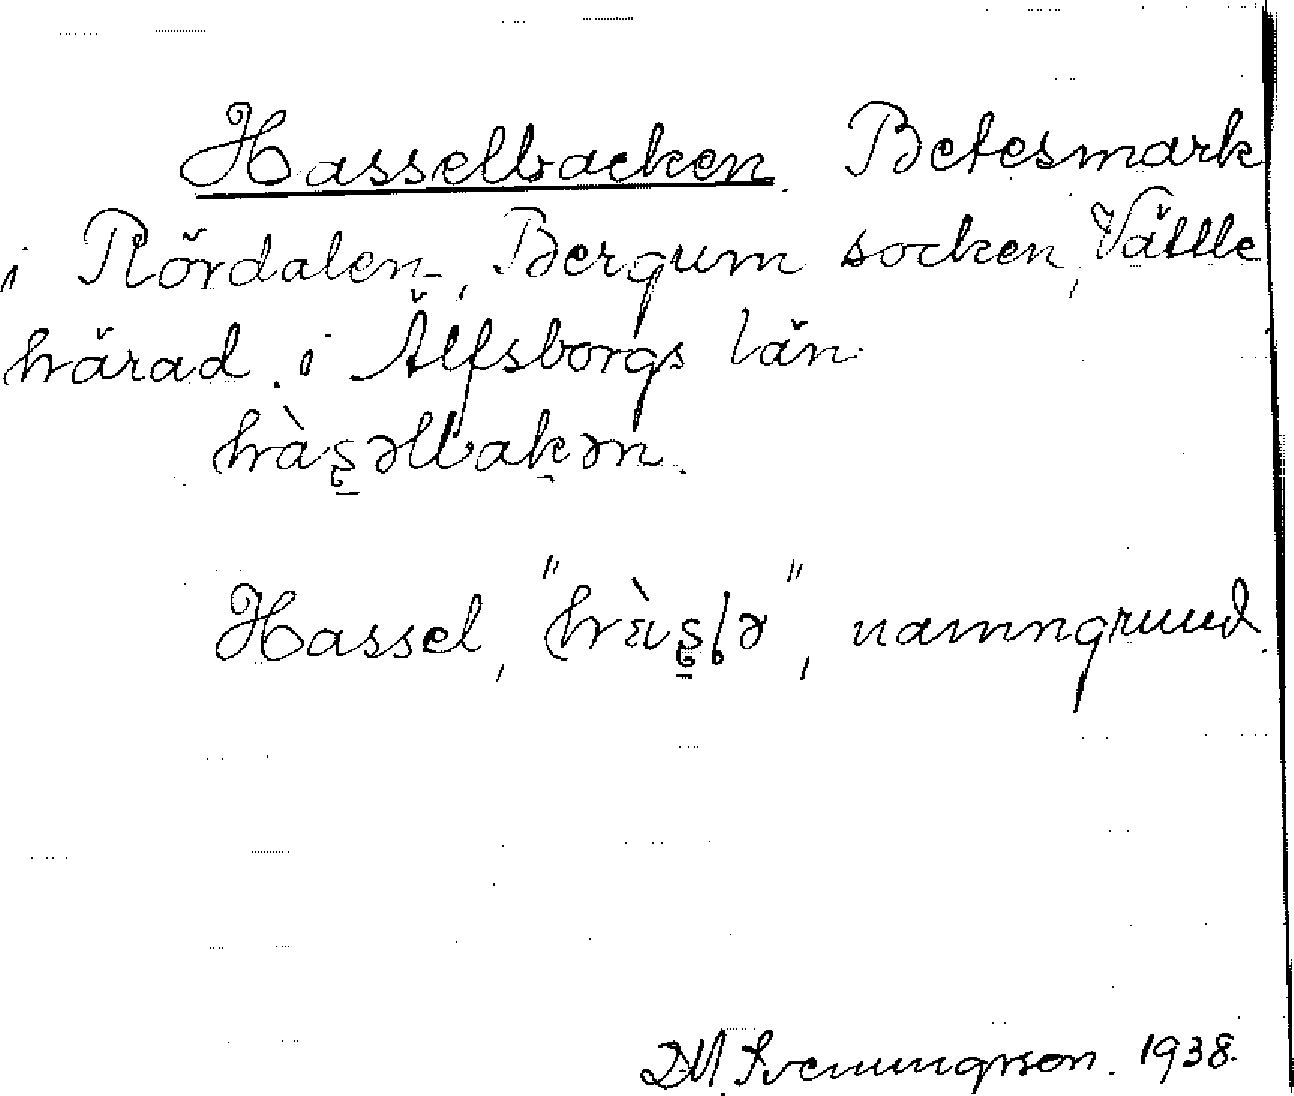 Hasselbacken. Betesmark
i Rördalen, Bergum socken, Vättle
härad i Älfsborgs län.
hàs̱əlbakən.
Hassel, "hàs̱lə", namngrund.
D.M. Svenungsson. 1938.